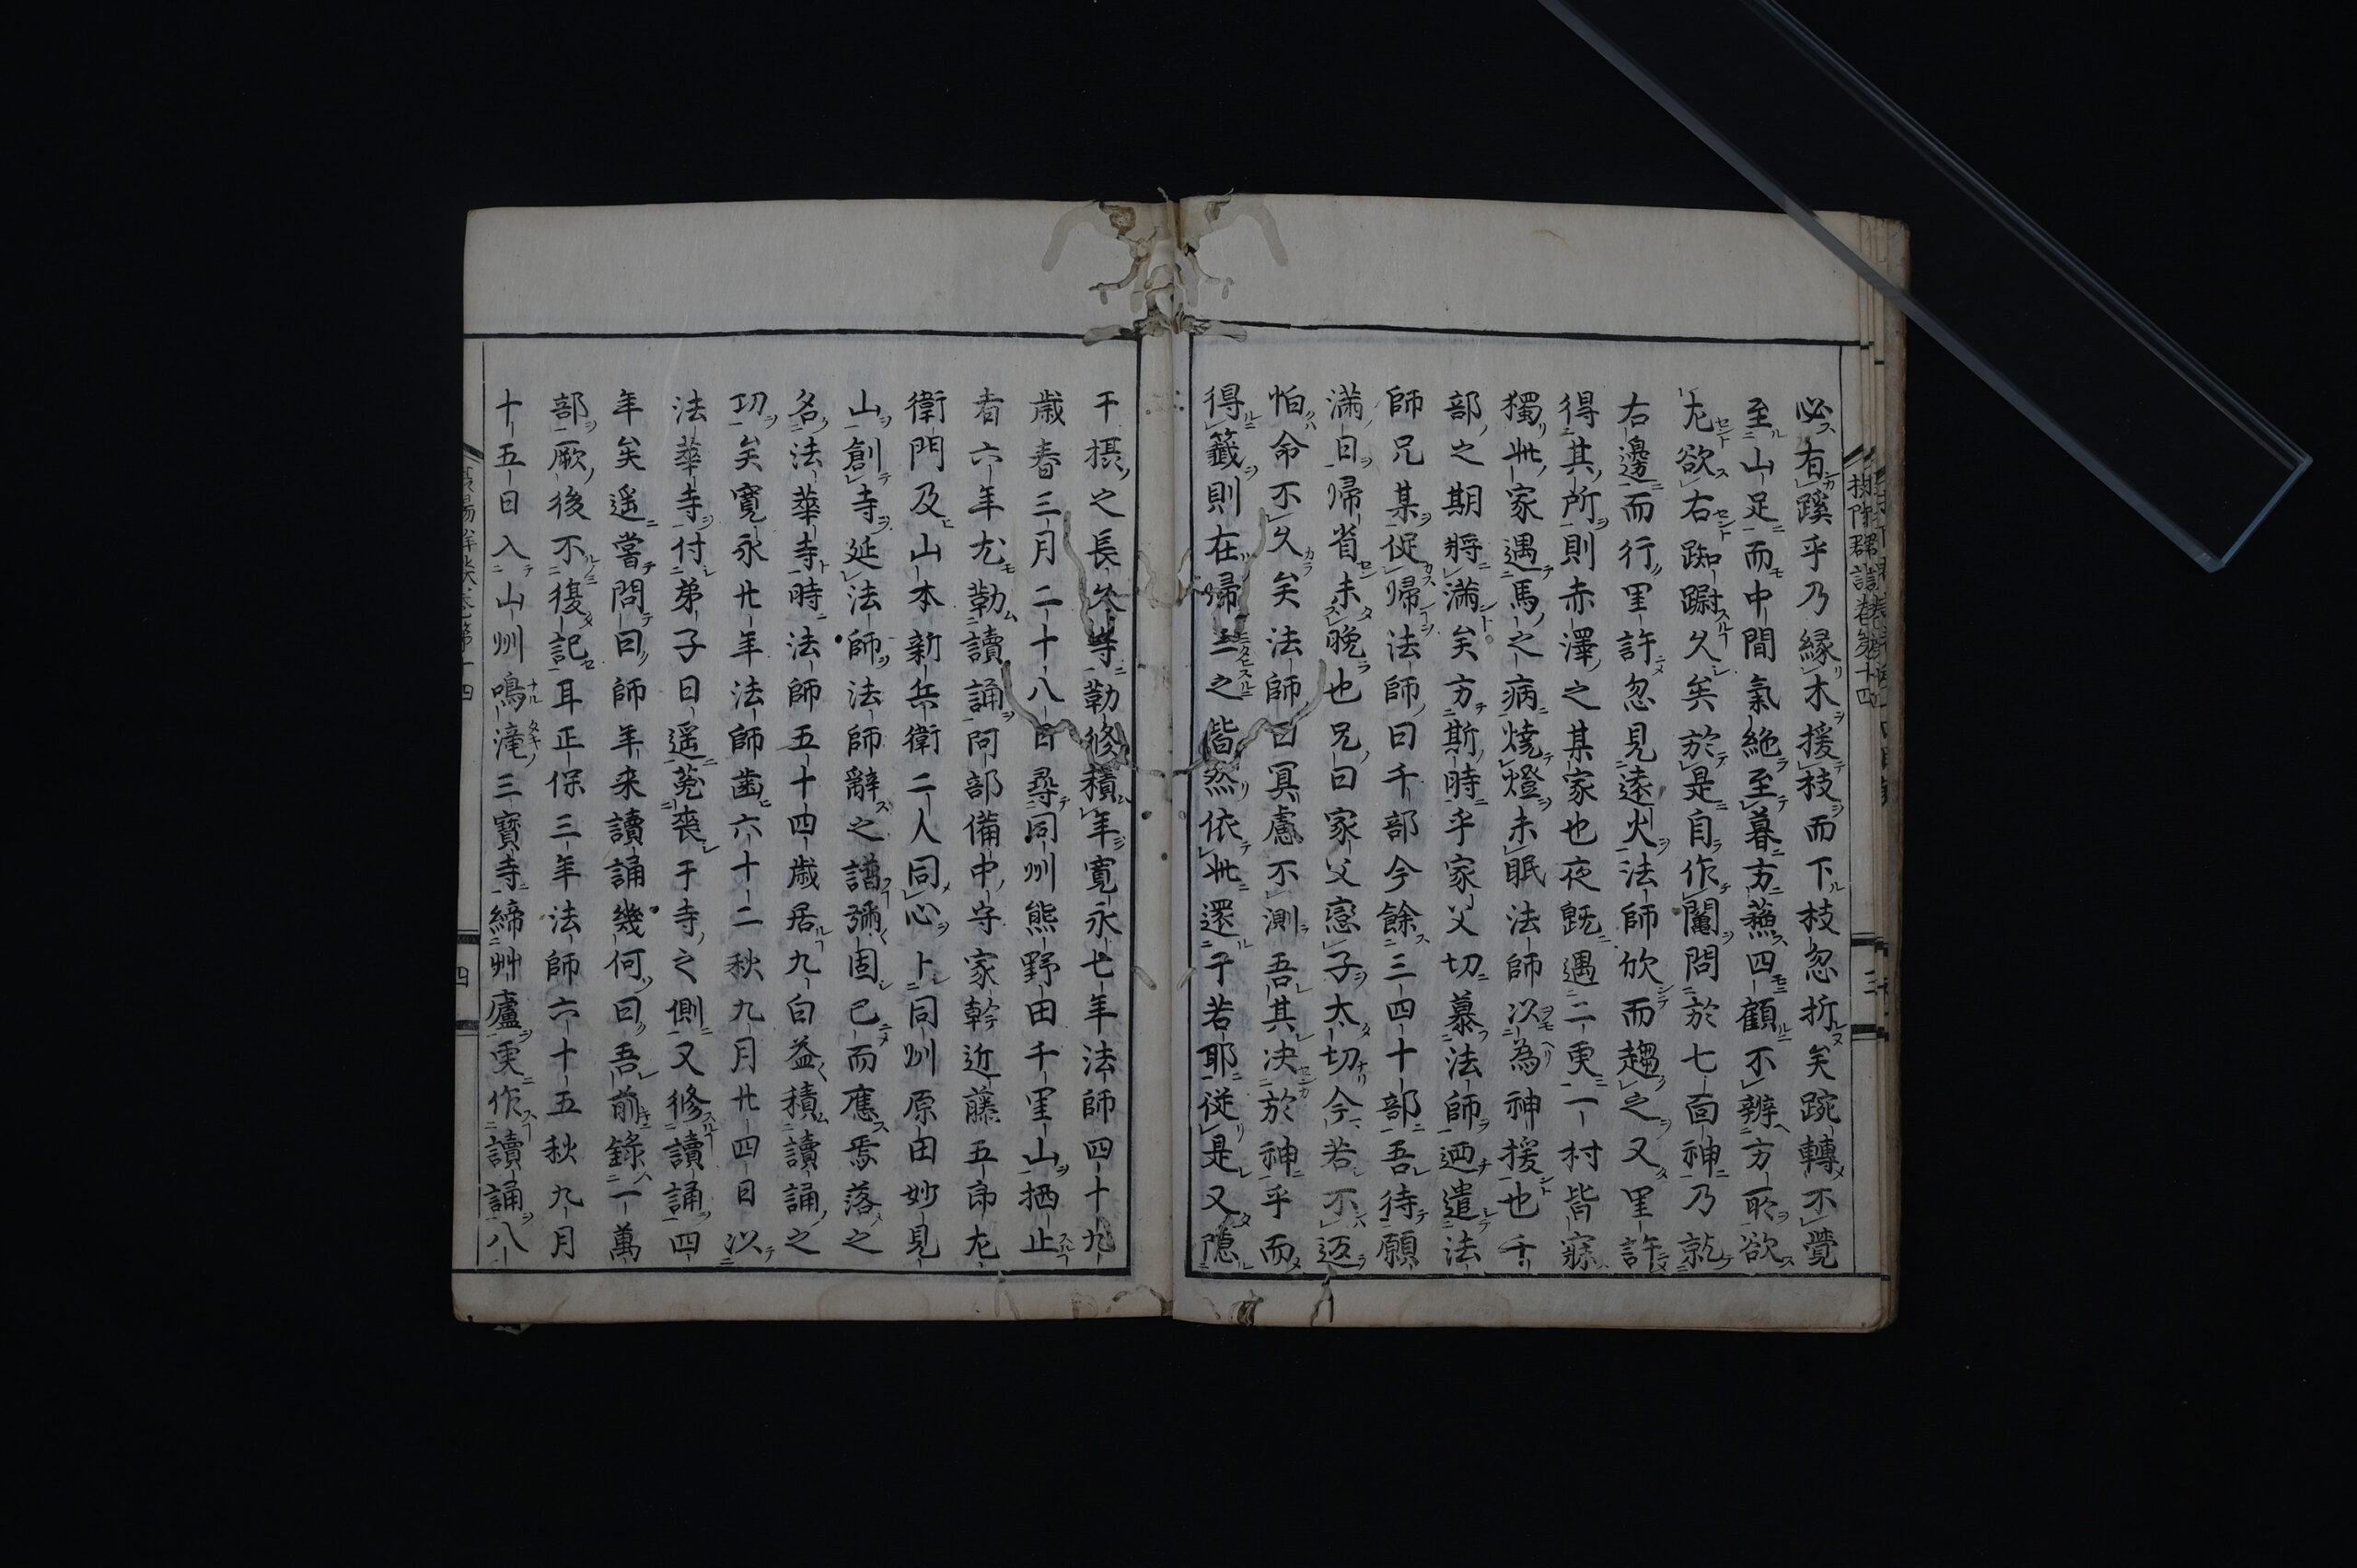 必有蹊乎乃縁木援枝而下枝忽折矣踠轉不覺
至山足而中間氣絶至暮方蘇四顧不辨方所欲
左欲右踟蹰久矣於是自作鬮問於七面神乃就
右邊而行里許忽見遠火法師欣而趨之又里許
得其所則赤澤之某家也夜既遇二更一村皆寐
獨此家遇馬之病燒燈未眠法師以為神援也千
部之期將滿矣方斯時乎家父切慕法師迺遣法
師兄某促歸法師曰千部今餘三四十部吾待願
滿日歸省未晚也兄曰家父戀子太切今若不返
怕命不久矣法師曰冥慮不測吾其决於神乎而
得籤則在歸三之皆然依此還于若耶從是又隱
于摂之長久寺勒修積年寛永七年法師四十九
歳春三月二十八日尋同州熊野田千里山栖止
者六年尤勒讀誦阿部備中守家幹近藤五郎左
衛門及山本新兵衛二人同心卜同州原田妙見
山創寺延法師法師辭之請彌固已而應焉落之
名法華寺時法師五十四歳居九白益積讀誦之
功矣寛永廿年法師齒六十二秋九月廿四日以
法華寺付弟子日遥菟裘于寺之側又修讀誦四
年矣遥嘗問曰師年来讀誦幾何曰吾前錄一萬
部厥後不復記耳正保三年法師六十五秋九月
十五日入山州鳴滝三寶寺締艸廬更作讀誦八
四